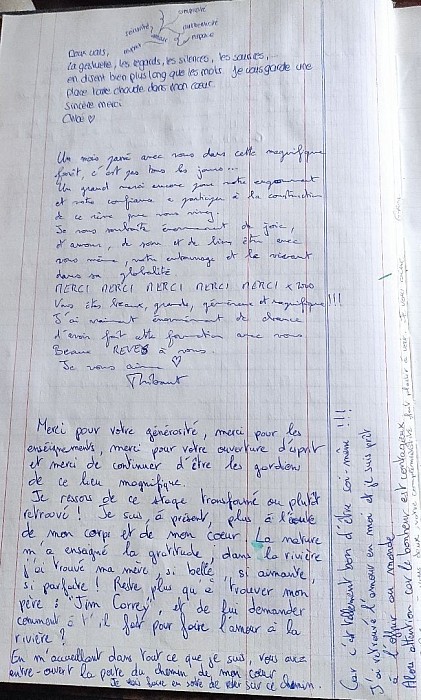 simplicité
sensualité
authenticité
amour
Pour vous,
La gestuelle, les regards, les silences, les sourires,
en disent bien plus long que les mots. Je vous garde une
place toute chaude dans mon cœur
Sincère merci
Chloé ♡
Un mois passé avec vous dans cette magnifique
forêt, c'est pas tous les jours...
Un grand merci encore pour votre engagement
et votre confiance a participer à la construction
de ce rêve que vous vivez.
Je vous souhaite énormément de joie,
d'amour, de soin et de bien être avec
vous même, votre entourage et le vivant
dans sa globalité
MERCI MERCI MERCI MERCI MERCI x 2000
Vous êtes beaux, grands, généreux et magnifiques !!!
J'ai vraiment énormément de chance
d'avoir fait cette formation avec vous
Beaux REVES à vous.
Je vous aime ♡
Thibaut
Merci pour votre générosité, merci pour les
enseignements, merci pour votre ouverture d'esprit
et merci de continuer d'être les gardien
de ce lieu magnifique.
Je ressors de ce stage transformé ou plutôt
retrouvé ! Je suis, à présent, plus à l'écoute
de mon corps et de mon coeur. La nature
m'a ensagné la gratitude, dans la rivière
j'ai trouvé ma mère, si belle, si aimante,
si parfaite ! Reste plus qu'à trouver mon
père : "Jim Correy", et de lui demander
comment à t'il fait pour faire l'amour à la
rivière ?
En m'accueillant dans tout ce que je suis, vous avez
entre-ouvert la porte du chemin de mon coeur
Je vous faire en sorte de rester sur ce chemin.
Car c'est tellement bon d'être soi-même !!!
J'ai retrouvé l'amour en moi et je suis prêt
à l'offrir au monde
Alors attention car le bonheur est contagieux